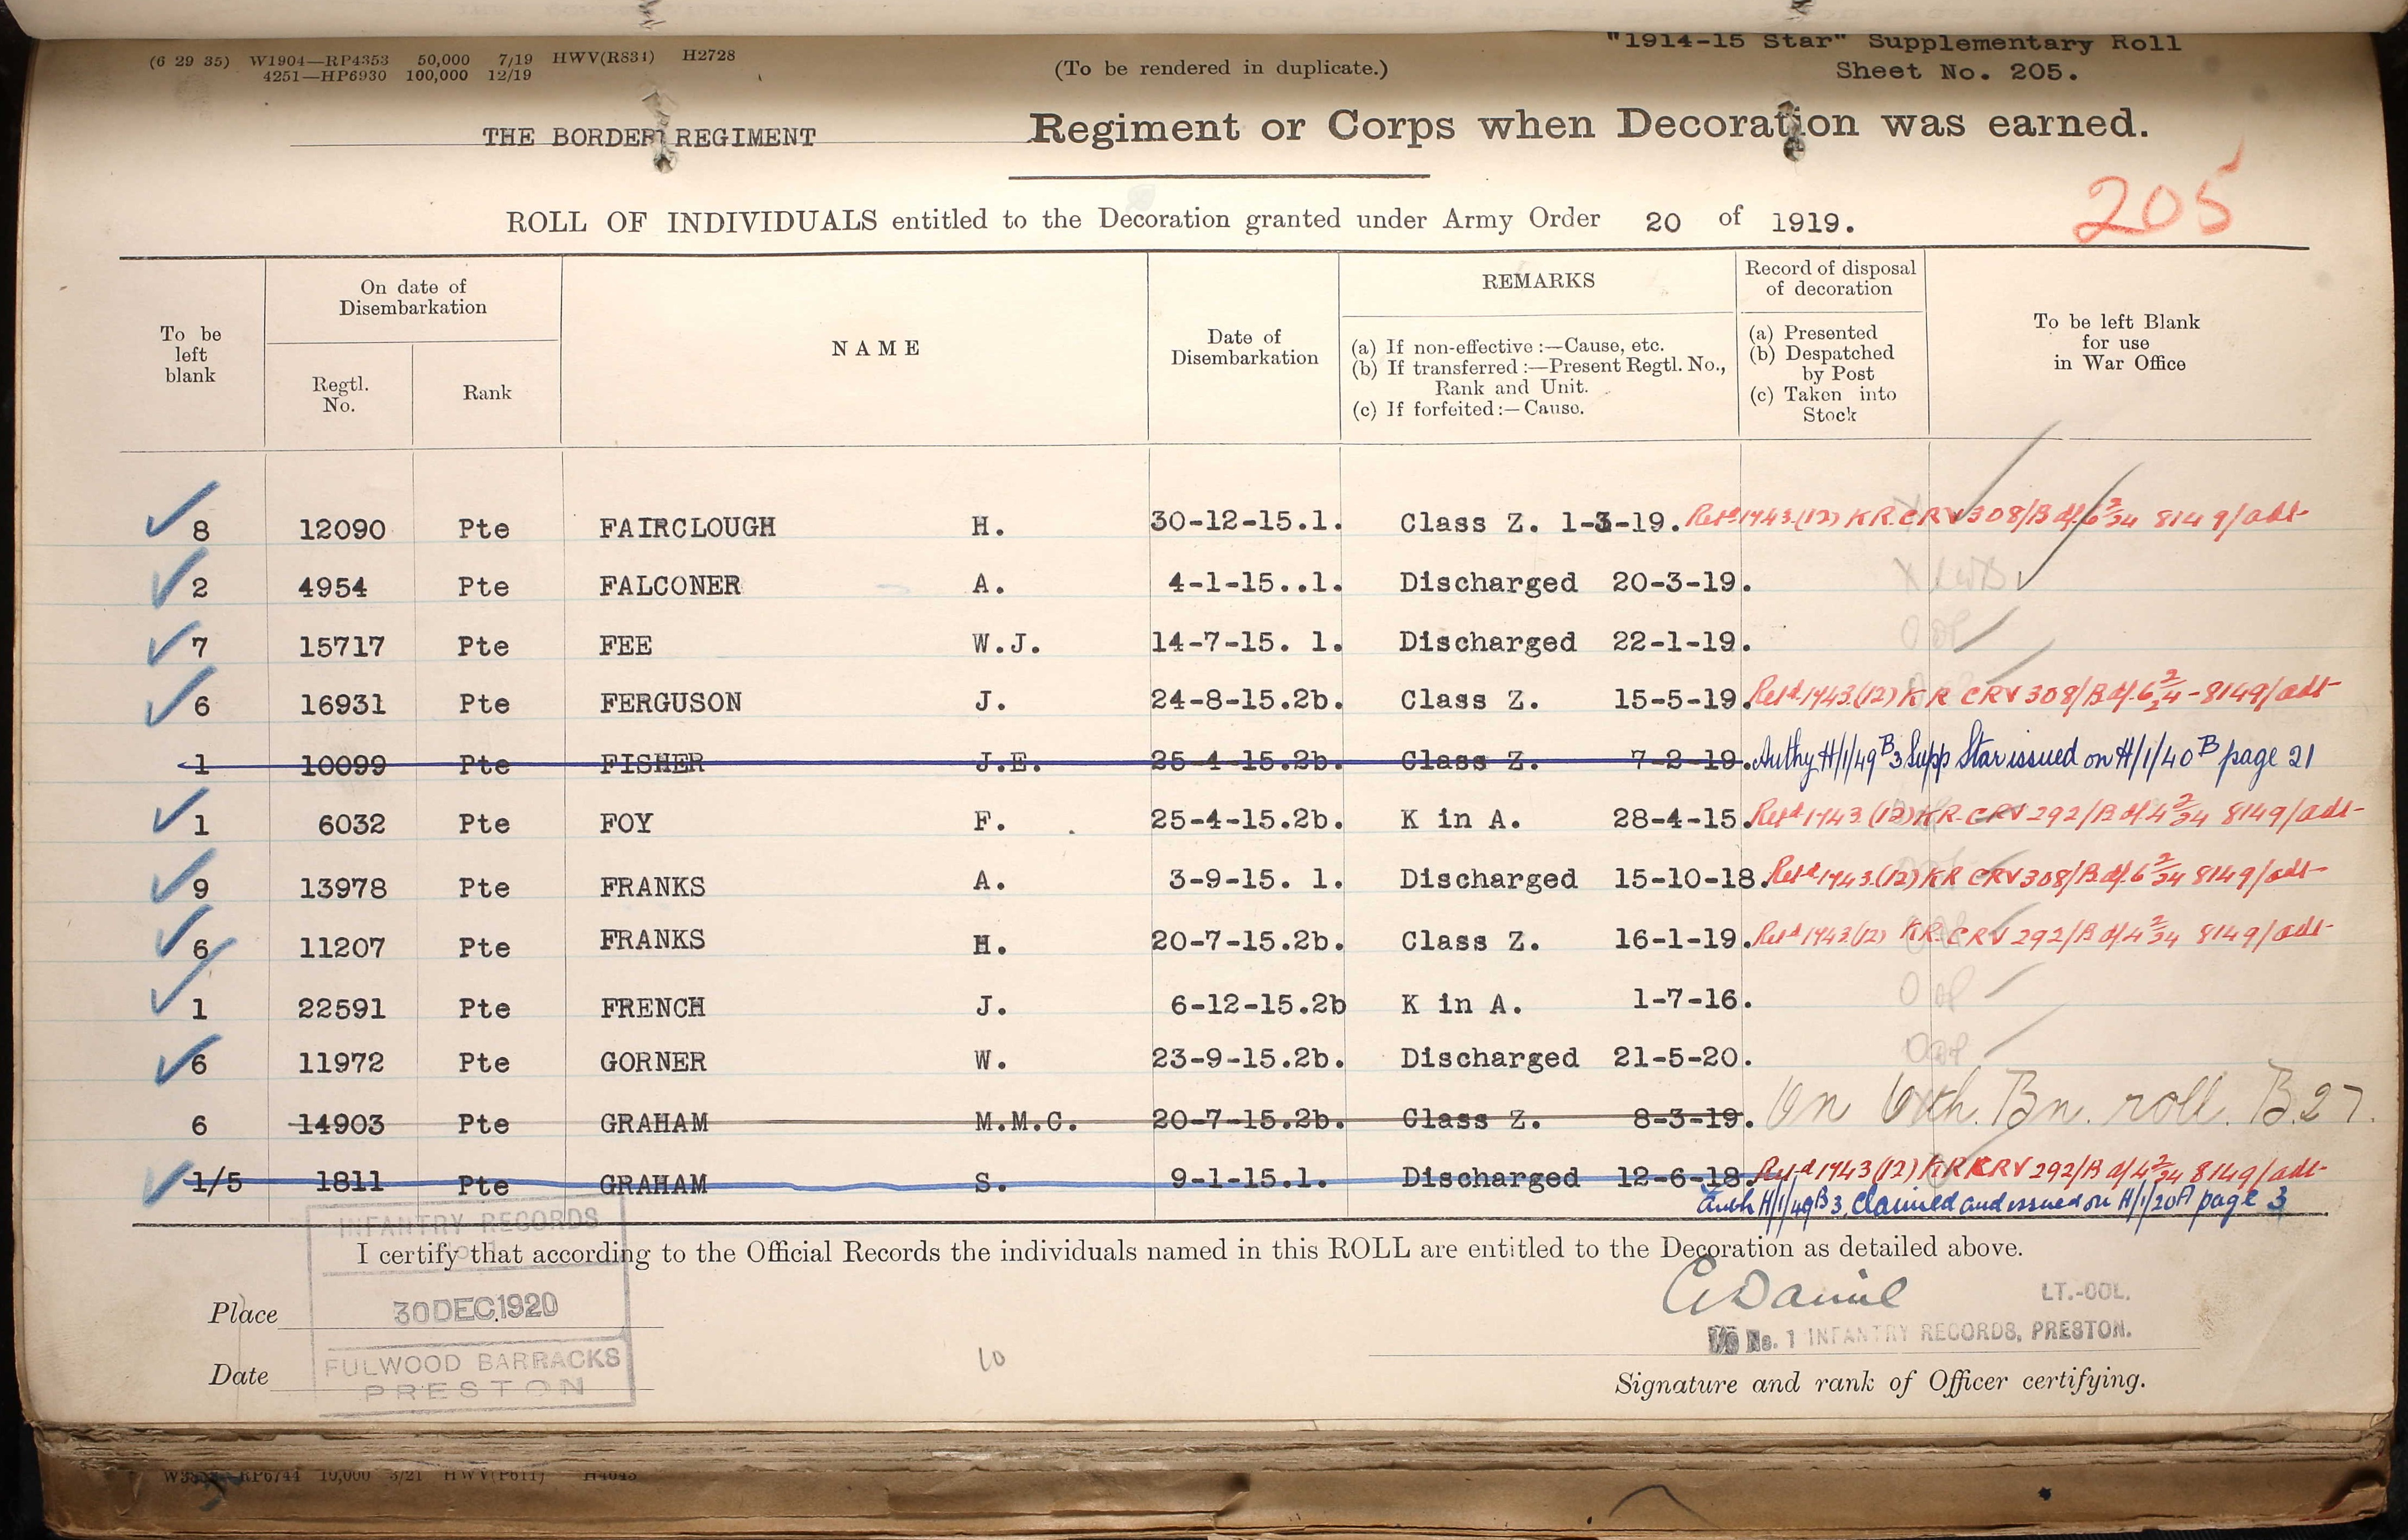 "1914-15 Star" Supplementary Roll
(6 29 35) W1904—RP4353 50,000 7/19 HWV(R831) H2728
4251—HP6930 100,000 12/19
(To be rendered in duplicate.)
Sheet No. 205.
THE BORDER REGIMENT Regiment or Corps when Decoration was earned.
205
ROLL OF INDIVIDUALS entitled to the Decoration granted under Army Order 20 of 1919.
To be left blank
On date of Disembarkation
Regtl. No.
Rank
NAME
Date of Disembarkation
REMARKS
(a) If non-effective :—Cause, etc.
(b) If transferred :—Present Regtl. No., Rank and Unit.
(c) If forfeited :—Cause.
Record of disposal of decoration
(a) Presented
(b) Despatched by Post
(c) Taken into Stock
To be left Blank for use in War Office
8 12090 Pte FAIRCLOUGH H. 30-12-15.1. Class Z. 1-3-19. Retd 1743.(12) KR. CRV 308/B 8149/adt
2 4954 Pte FALCONER A. 4-1-15..1. Discharged 20-3-19.
7 15717 Pte FEE W.J. 14-7-15. 1. Discharged 22-1-19.
6 16931 Pte FERGUSON J. 24-8-15.2b. Class Z. 15-5-19. Retd 1743.(12) KR CRV 308/B 8149/adt
1 10099 Pte FISHER J.E. 25-4-15.2b. Class Z. 7-2-19. Authy H/1/49 B3 Supp Star issued on H/1/40 B page 21
1 6032 Pte FOY F. 25-4-15.2b. K in A. 28-4-15. Retd 1743.(12) KR. CRV 292/B 8149/adt
9 13978 Pte FRANKS A. 3-9-15. 1. Discharged 15-10-18. Retd 1743.(12) KR CRV 308/B 8149/adt
6 11207 Pte FRANKS H. 20-7-15.2b. Class Z. 16-1-19. Retd 1743.(12) KR. CRV 292/B 8149/adt
1 22591 Pte FRENCH J. 6-12-15.2b K in A. 1-7-16.
6 11972 Pte GORNER W. 23-9-15.2b. Discharged 21-5-20.
6 14903 Pte GRAHAM M.M.C. 20-7-15.2b. Class Z. 8-3-19. On 6th. Bn. roll. B.27.
1/5 1811 Pte GRAHAM S. 9-1-15.1. Discharged 12-6-18. Retd 1743 (12) KR CRV 292/B 8149/adt
Auth H/1/49 B3. Claimed and issued on H/1/20A page 3
I certify that according to the Official Records the individuals named in this ROLL are entitled to the Decoration as detailed above.
INFANTRY RECORDS
No. 1
Place
30 DEC. 1920
FULWOOD BARRACKS
PRESTON
Date
10
LT.-COL.
No. 1 INFANTRY RECORDS, PRESTON.
Signature and rank of Officer certifying.
RP6744 10,000 3/21 HWV(P611)